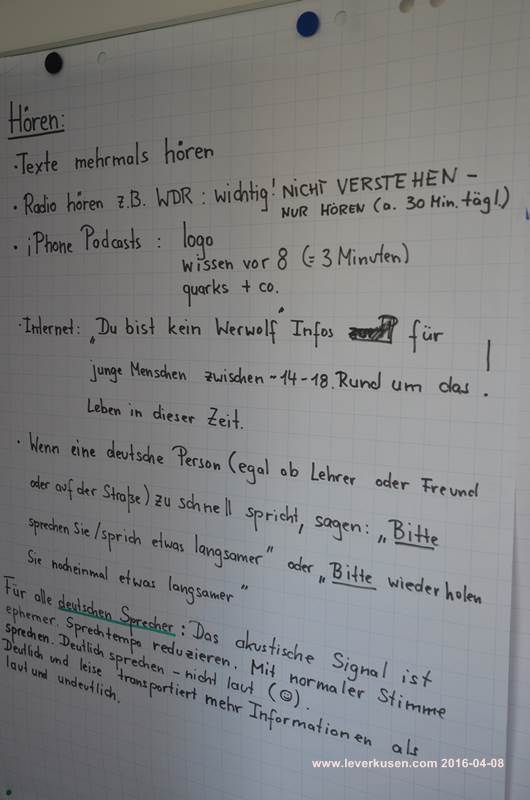 Hören:
· Texte mehrmals hören
· Radio hören z.B. WDR : wichtig! NICHT VERSTEHEN –
NUR HÖREN (a. 30 Min. tägl.)
· iPhone Podcasts : logo
wissen vor 8 (= 3 Minuten)
quarks + co.
· Internet: „Du bist kein Werwolf" Infos für
junge Menschen zwischen ~14-18. Rund um das
Leben in dieser Zeit.
· Wenn eine deutsche Person (egal ob Lehrer oder Freund
oder auf der Straße) zu schnell spricht, sagen: „Bitte
sprechen Sie/sprich etwas langsamer" oder „Bitte wiederholen
Sie nocheinmal etwas langsamer"
Für alle deutschen Sprecher: Das akustische Signal ist
ephemer. Sprechtempo reduzieren. Mit normaler Stimme
sprechen. Deutlich sprechen – nicht laut (☺).
Deutlich und leise transportiert mehr Informationen als
laut und undeutlich.
www.leverkusen.com 2016-04-08